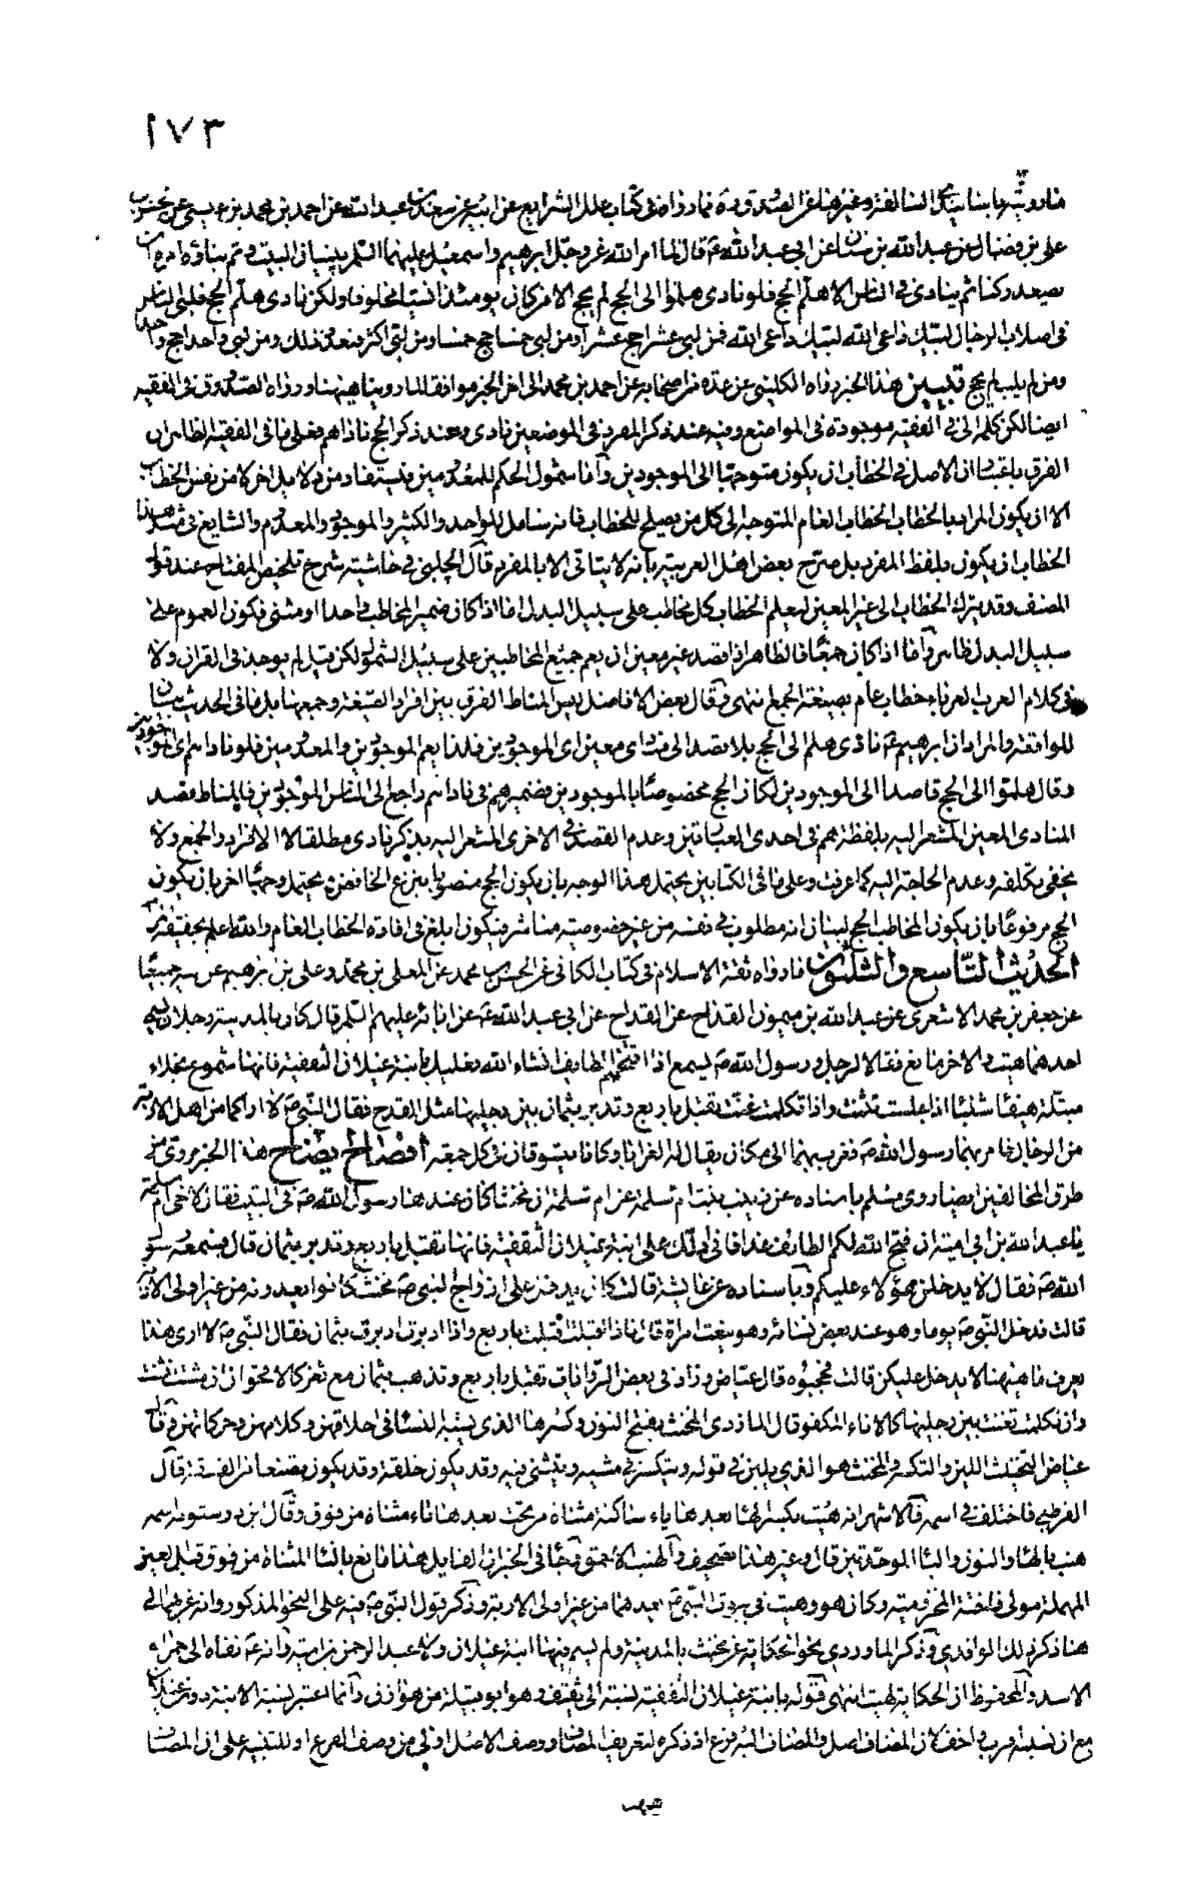 ١٧٣
ما رويته باسنادي السالفة وغيرها عن الصدوق ره فيما رواه في كتاب علل الشرايع عن ابيه عن سعد بن عبد الله عن احمد بن محمد بن عيسى عن الحسن بن
علي بن فضال عن عبد الله بن سنان عن ابي عبد الله ع قال لما امر الله عز وجل ابرهيم واسمعيل عليهما السلم ببنيان البيت وتم بناؤه امره ان
يصعد ركنا ثم ينادي في الناس الا هلم الحج فلو نادى هلموا الى الحج لم يحج الا من كان يومئذ انسيا مخلوقا ولكن نادى هلم الحج فلبى الناس
في اصلاب الرجال لبيك داعي الله لبيك داعي الله فمن لبى عشرا حج عشرا ومن لبى خمسا حج خمسا ومن لبى اكثر فبعدد ذلك ومن لبى واحدا حج واحدا
ومن لم يلب لم يحج تبيين هذا الخبر رواه الكليني عن عدة من اصحابه عن احمد بن محمد الى اخر الخبر موافقا لما رويناه هيهنا ورواه الصدوق في الفقيه
ايضا لكن كلمة الى في الفقيه موجودة في المواضع وفيه عند ذكر المفرد في الموضعين نادى وعند ذكر الجمع ناداهم فعلى ما في الفقيه الظاهر ان
الفرق باعتبار ان الاصل في الخطاب ان يكون متوجها الى الموجودين واما شمول الحكم للمعدومين فيستفاد من دلايل اخر لا من نفس الخطاب
الا ان يكون المراد بالخطاب الخطاب العام المتوجه الى كل من يصلح للخطاب فانه شامل للواحد والكثير والموجود والمعدوم والشايع في مثل هذا
الخطاب ان يكون بلفظ المفرد بل صرح بعض اهل العربية بانه لا يتاتى الا بالمفرد قال الچلبي في حاشيته شرح تلخيص المفتاح عند قول
المصنف وقد يترك الخطاب الى غير المعين ليعم الخطاب كل مخاطب على سبيل البدل اما اذا كان ضمير المخاطب واحدا او مثنى فكون العموم على
سبيل البدل ظاهر واما اذا كان جمعا فالظاهر اذا قصد غير معين ان يعم جميع المخاطبين على سبيل الشمول لكن قيل لم يوجد في القران ولا
في كلام العرب العرباء خطاب عام بصيغة الجمع انتهى وقال بعض الافاضل ليس المناط الفرق بين افراد الصيغة وجمعها بل ما في الحديث بيان
للواقعة والمراد ان ابرهيم ع نادى هلم الى الحج بلا قصد الى منادى معين اي الموجودين فلذا يعم الموجودين والمعدومين فلو ناداهم اي الموجودين
وقال هلموا الى الحج قاصدا الى الموجودين لكان الحج مخصوصا بالموجودين فضمير هم في ناداهم راجع الى الناس الموجودين فالمناط قصد
المنادى المعين المشعر اليه بلفظة هم في احدى العبارتين وعدم القصد في الاخرى المشعر اليه بذكر نادى مطلقا لا الافراد والجمع ولا
يخفى تكلفه وعدم الحاجة اليه كما عرفت وعلى ما في الكتابين يحتمل هذا الوجه بان يكون الحج منصوبا بنزع الخافض ويحتمل وجها اخر بان يكون
الحج مرفوعا بان يكون المخاطب الحج لبيان انه مطلوب في نفسه من غير خصوصية مباشر فيكون ابلغ في افادة الخطاب العام والله اعلم بحقيقة
الحديث التاسع والثلثون ما رواه ثقة الاسلام في كتاب الكافي عن الحسين بن محمد عن المعلى بن محمد وعلي بن ابرهيم عن ابيه جميعا
عن جعفر بن محمد الاشعري عن عبد الله بن ميمون القداح عن القداح عن ابي عبد الله ع عن ابائه عليهم السلم قال كان بالمدينة رجلان يسمى
احدهما هيت والاخر مانع فقالا لرجل ورسول الله ص يسمع اذا افتتحتم الطايف انشاء الله فعليك بابنة غيلان الثقفية فانها شموع نجلاء
مبتلة هيفاء شنباء اذا جلست تثنت واذا تكلمت غنت تقبل باربع وتدبر بثمان بين رجليها مثل القدح فقال النبي ص لا اراكما من اهل الاربة
من الرجال فامر بهما رسول الله ص فغرب بهما الى مكان يقال له العرايا وكانا يتسوقان في كل جمعة افضاح ايضاح هذا الخبر مروي من
طرق المخالفين ايضا روى مسلم باسناده عن زينب بنت ام سلمة عن ام سلمة ان مخنثا كان عندها ورسول الله ص في البيت فقال لاخي ام سلمة
يا عبد الله بن ابي امية ان فتح الله لكم الطائف غدا فاني ادلك على ابنة غيلان الثقفية فانها تقبل باربع وتدبر بثمان قال فسمعه رسول
الله ص فقال لا يدخلن هؤلاء عليكم وباسناده عن عايشة قالت كان يدخل على ازواج النبي ص مخنث كانوا يعدونه من غير اولي الاربة
قالت فدخل النبي ص يوما وهو عند بعض نسائه وهو ينعت امراة قال اذا اقبلت اقبلت باربع واذا ادبرت ادبرت بثمان فقال النبي ص لا ارى هذا
يعرف ما هيهنا لا يدخل عليكن قالت فحجبوه قال عياض وزاد في بعض الروايات تقبل باربع وتذهب بثمان مع ثغر كالاقحوان ان مشت تثنت
وان تكلمت تغنت بين رجليها كالاناء المكفو قال المازري المخنث بفتح النون وكسرها الذي يشبه النساء في اخلاقهن وكلامهن وحركاتهن وقال
عياض التخنث اللين والتكسر والمخنث هو الذي يلين في قوله ويتكسر في مشيه ويتثنى فيه وقد يكون خلقة وقد يكون تصنعا من الفسقة قال
القرطبي واختلف في اسمه فالاشهر انه هيت بكسر الهاء بعدها ياء ساكنة مثناة من تحت بعدها تاء مثناة من فوق وقال ابن درستويه اسمه
هنب بالهاء والنون والباء الموحدة ثم قال وغير هذا تصحيف والهنب الاحمق وجاء في الخبر ان القايل هذا ماتع بالتاء المثناة من فوق قبل العين
المهملة مولى فاختة المخزومية وكان هو وهيت في بيوت النبي ص يعدهما من غير اولي الاربة وذكر قول النبي ص فيه على النحو المذكور وانه غربهما الى
هنا ذكر ذلك الواقدي وذكر الماوردي نحو الحكاية عن مخنث بالمدينة ولم يسم فيها ابنة غيلان ولا عبد الرحمن بن امية وانه ع نفاه الى حمراء
الاسد والمحفوظ ان الحكاية لهيت انتهى قوله بابنة غيلان الثقفية نسبة الى ثقيف وهو ابو قبيلة من هوازن وانما اعتبر نسبة الابنة دون غيلان
مع ان نسبته اقرب واخف لان المضاف اصل والمضاف اليه فرع اذ ذكره لتعريف المضاف ووصف الاصل اولى من وصف الفرع او للتنبيه على ان المضاف